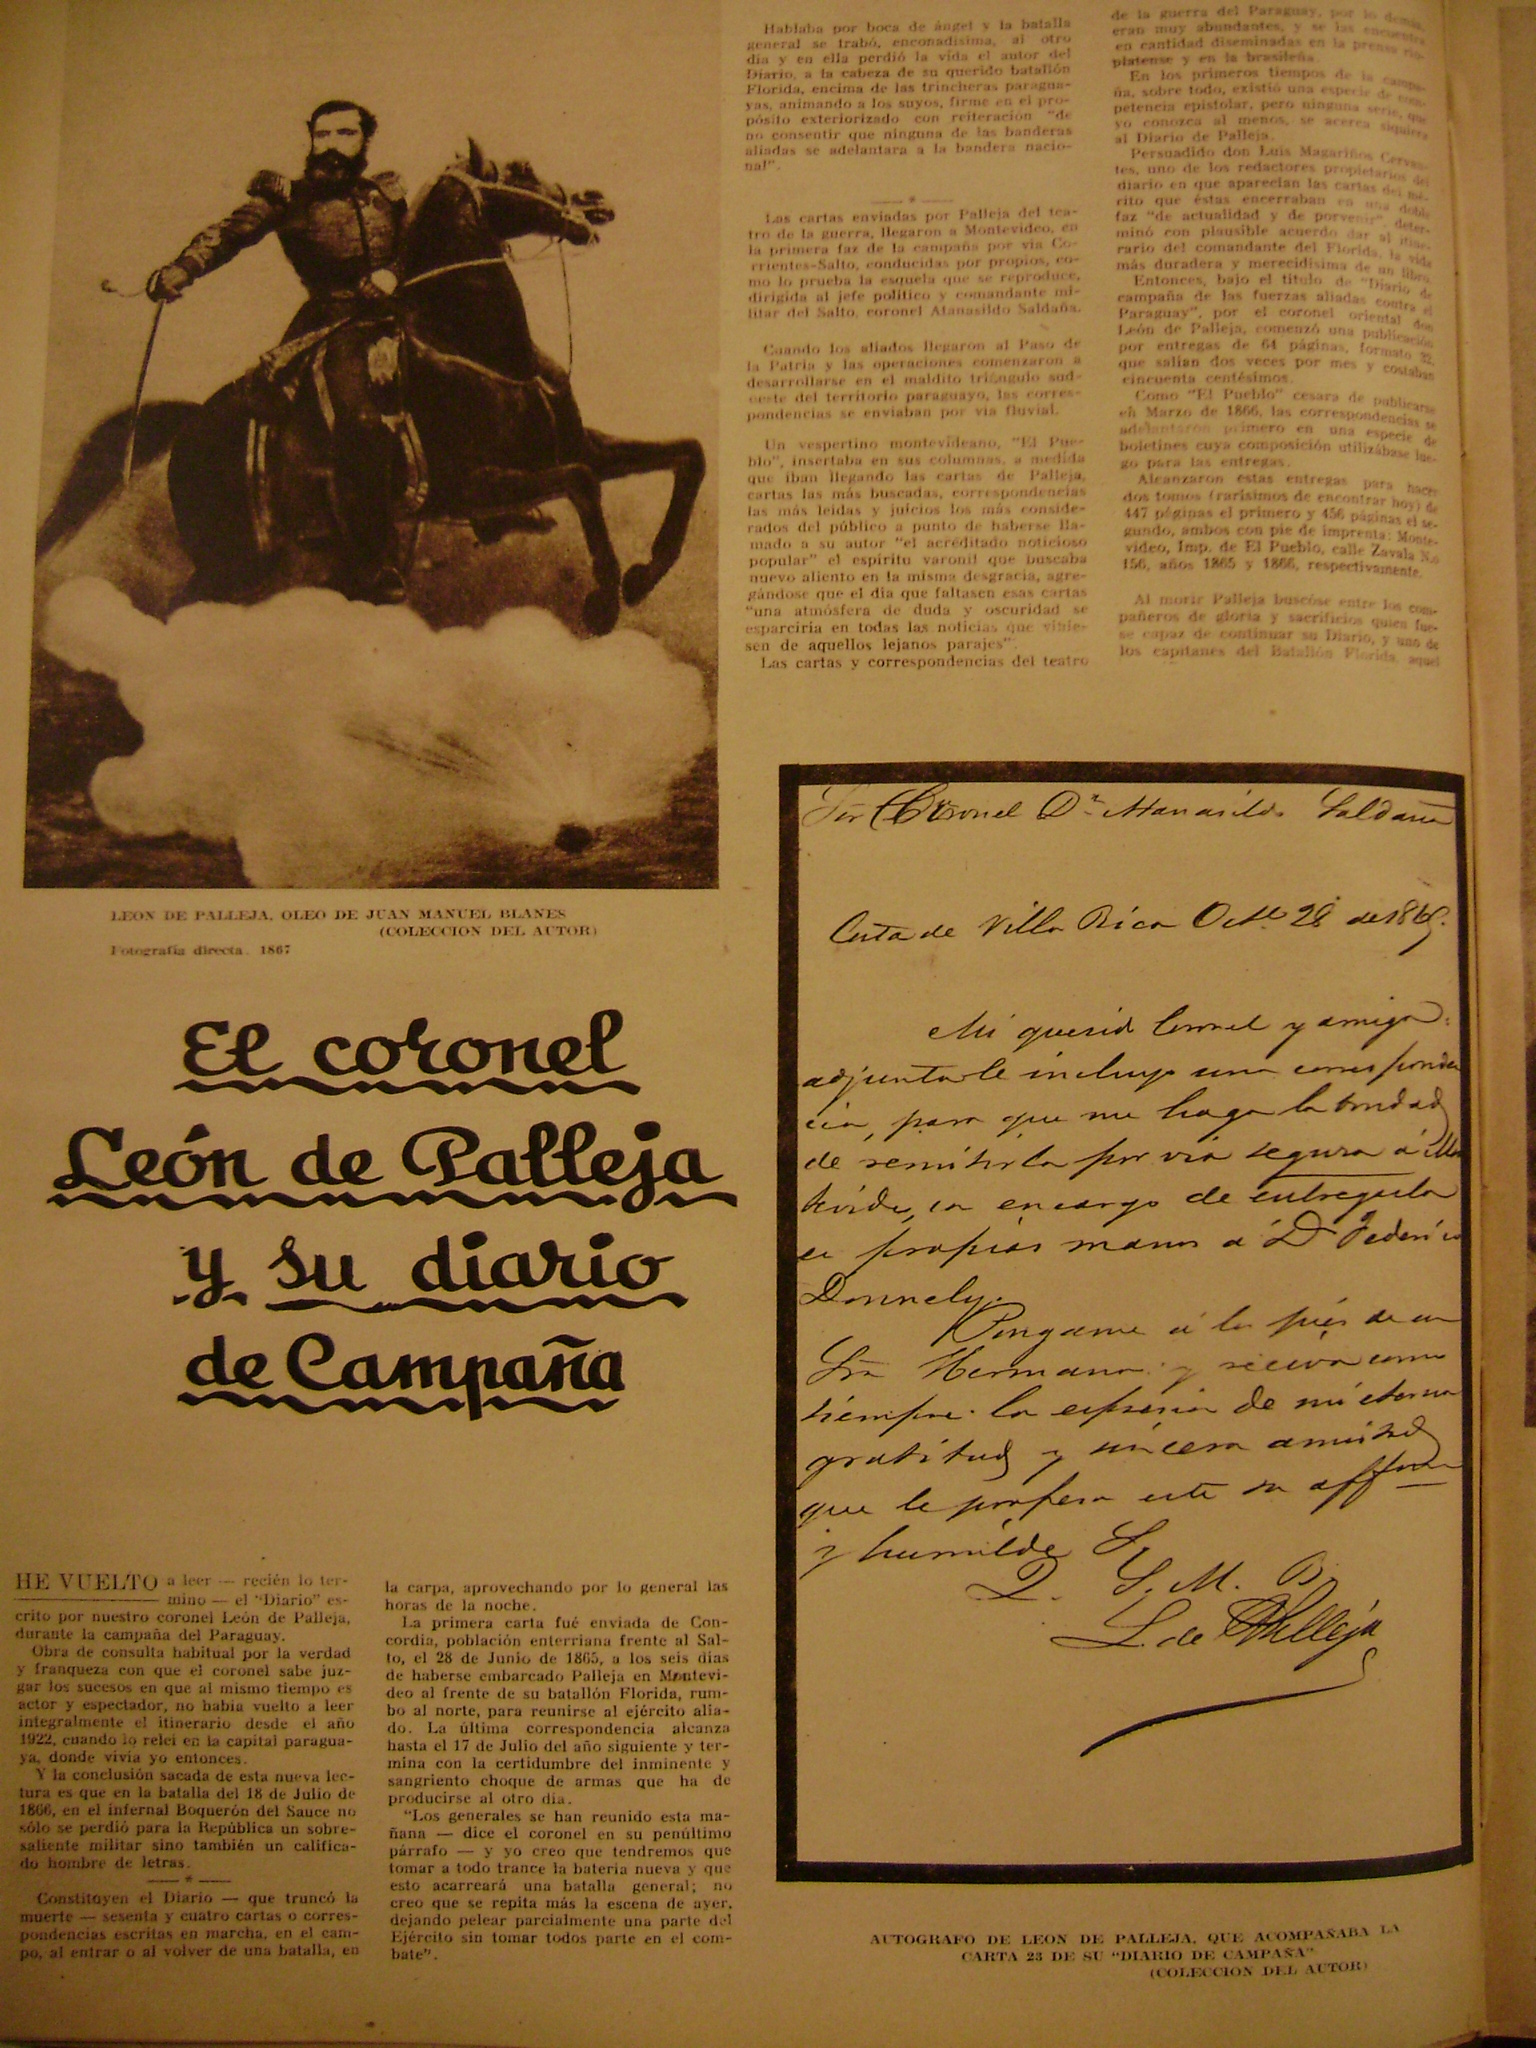 LEON DE PALLEJA, OLEO DE JUAN MANUEL BLANES
(COLECCION DEL AUTOR)
Fotografía directa. 1867
El coronel
León de Palleja
y su diario
de Campaña
HE VUELTO a leer — recién lo ter-
mino — el "Diario" es-
crito por nuestro coronel León de Palleja,
durante la campaña del Paraguay.
Obra de consulta habitual por la verdad
y franqueza con que el coronel sabe juz-
gar los sucesos en que al mismo tiempo es
actor y espectador, no había vuelto a leer
integralmente el itinerario desde el año
1922, cuando lo releí en la capital paragua-
ya, donde vivía yo entonces.
Y la conclusión sacada de esta nueva lec-
tura es que en la batalla del 18 de Julio de
1866, en el infernal Boquerón del Sauce no
sólo se perdió para la República un sobre-
saliente militar sino también un califica-
do hombre de letras.
— * —
Constituyen el Diario — que truncó la
muerte — sesenta y cuatro cartas o corres-
pondencias escritas en marcha, en el cam-
po, al entrar o al volver de una batalla, en
la carpa, aprovechando por lo general las
horas de la noche.
La primera carta fué enviada de Con-
cordia, población enterriana frente al Sal-
to, el 28 de Junio de 1865, a los seis días
de haberse embarcado Palleja en Montevi-
deo al frente de su batallón Florida, rum-
bo al norte, para reunirse al ejército alia-
do. La última correspondencia alcanza
hasta el 17 de Julio del año siguiente y ter-
mina con la certidumbre del inminente y
sangriento choque de armas que ha de
producirse al otro día.
"Los generales se han reunido esta ma-
ñana — dice el coronel en su penúltimo
párrafo — y yo creo que tendremos que
tomar a todo trance la batería nueva y que
esto acarreará una batalla general; no
creo que se repita más la escena de ayer,
dejando pelear parcialmente una parte del
Ejército sin tomar todos parte en el com-
bate".
Hablaba por boca de ángel y la batalla
general se trabó, enconadísima, al otro
día y en ella perdió la vida el autor del
Diario, a la cabeza de su querido batallón
Florida, encima de las trincheras paragua-
yas, animando a los suyos, firme en el pro-
pósito exteriorizado con reiteración "de
no consentir que ninguna de las banderas
aliadas se adelantara a la bandera nacio-
nal".
— * —
Las cartas enviadas por Palleja del tea-
tro de la guerra, llegaron a Montevideo, en
la primera faz de la campaña por vía Co-
rrientes-Salto, conducidas por propios, co-
mo lo prueba la esquela que se reproduce,
dirigida al jefe político y comandante mi-
litar del Salto, coronel Atanasildo Saldaña.
Cuando los aliados llegaron al Paso de
la Patria y las operaciones comenzaron a
desarrollarse en el maldito triángulo sud-
oeste del territorio paraguayo, las corres-
pondencias se enviaban por vía fluvial.
Un vespertino montevideano, "El Pue-
blo", insertaba en sus columnas, a medida
que iban llegando las cartas de Palleja,
cartas las más buscadas, correspondencias
las más leídas y juicios los más conside-
rados del público a punto de haberse lla-
mado a su autor "el acreditado noticioso
popular" el espíritu varonil que buscaba
nuevo aliento en la misma desgracia, agre-
gándose que el día que faltasen esas cartas
"una atmósfera de duda y oscuridad se
esparciría en todas las noticias que vinie-
sen de aquellos lejanos parajes".
Las cartas y correspondencias del teatro
de la guerra del Paraguay, por lo demás,
eran muy abundantes, y se las encuentra
en cantidad diseminadas en la prensa rio-
platense y en la brasileña.
En los primeros tiempos de la campa-
ña, sobre todo, existió una especie de com-
petencia epistolar, pero ninguna serie, que
yo conozca al menos, se acerca siquiera
al Diario de Palleja.
Persuadido don Luis Magariños Cervan-
tes, uno de los redactores propietarios del
diario en que aparecían las cartas del mé-
rito que éstas encerraban en una doble
faz "de actualidad y de porvenir", deter-
minó con plausible acuerdo dar al itine-
rario del comandante del Florida, la vida
más duradera y merecidísima de un libro.
Entonces, bajo el título de "Diario de
campaña de las fuerzas aliadas contra el
Paraguay", por el coronel oriental don
León de Palleja, comenzó una publicación
por entregas de 64 páginas, formato 32,
que salían dos veces por mes y costaban
cincuenta centésimos.
Como "El Pueblo" cesara de publicarse
en Marzo de 1866, las correspondencias se
adelantaron primero en una especie de
boletines cuya composición utilizábase lue-
go para las entregas.
Alcanzaron estas entregas para hacer
dos tomos (rarísimos de encontrar hoy) de
447 páginas el primero y 456 páginas el se-
gundo, ambos con pie de imprenta: Monte-
video, Imp. de El Pueblo, calle Zavala N.o
156, años 1865 y 1866, respectivamente.
Al morir Palleja buscóse entre los com-
pañeros de gloria y sacrificios quien fue-
se capaz de continuar su Diario, y uno de
los capitanes del Batallón Florida, aquel
Sor Coronel Dn Atanasildo Saldaña
Costa de Villa Rica Oct.e 28 de 1865.
Mi querido Coronel y amigo:
adjunto le incluyo una corresponden
cia, para que me haga la bondad
de remitirla por via segura á Mon
tevideo, con encargo de entregarla
en propias manos á Dn Federico
Donnely.
Pongame á los pies de su
Sra Hermana y reciva como
siempre la espresion de mi eterna
gratitud y sincera amistad
que le profesa este su affmo
y humilde S.
Q. S. M. B.
L. de Palleja
AUTOGRAFO DE LEON DE PALLEJA, QUE ACOMPAÑABA LA
CARTA 23 DE SU "DIARIO DE CAMPAÑA"
(COLECCION DEL AUTOR)